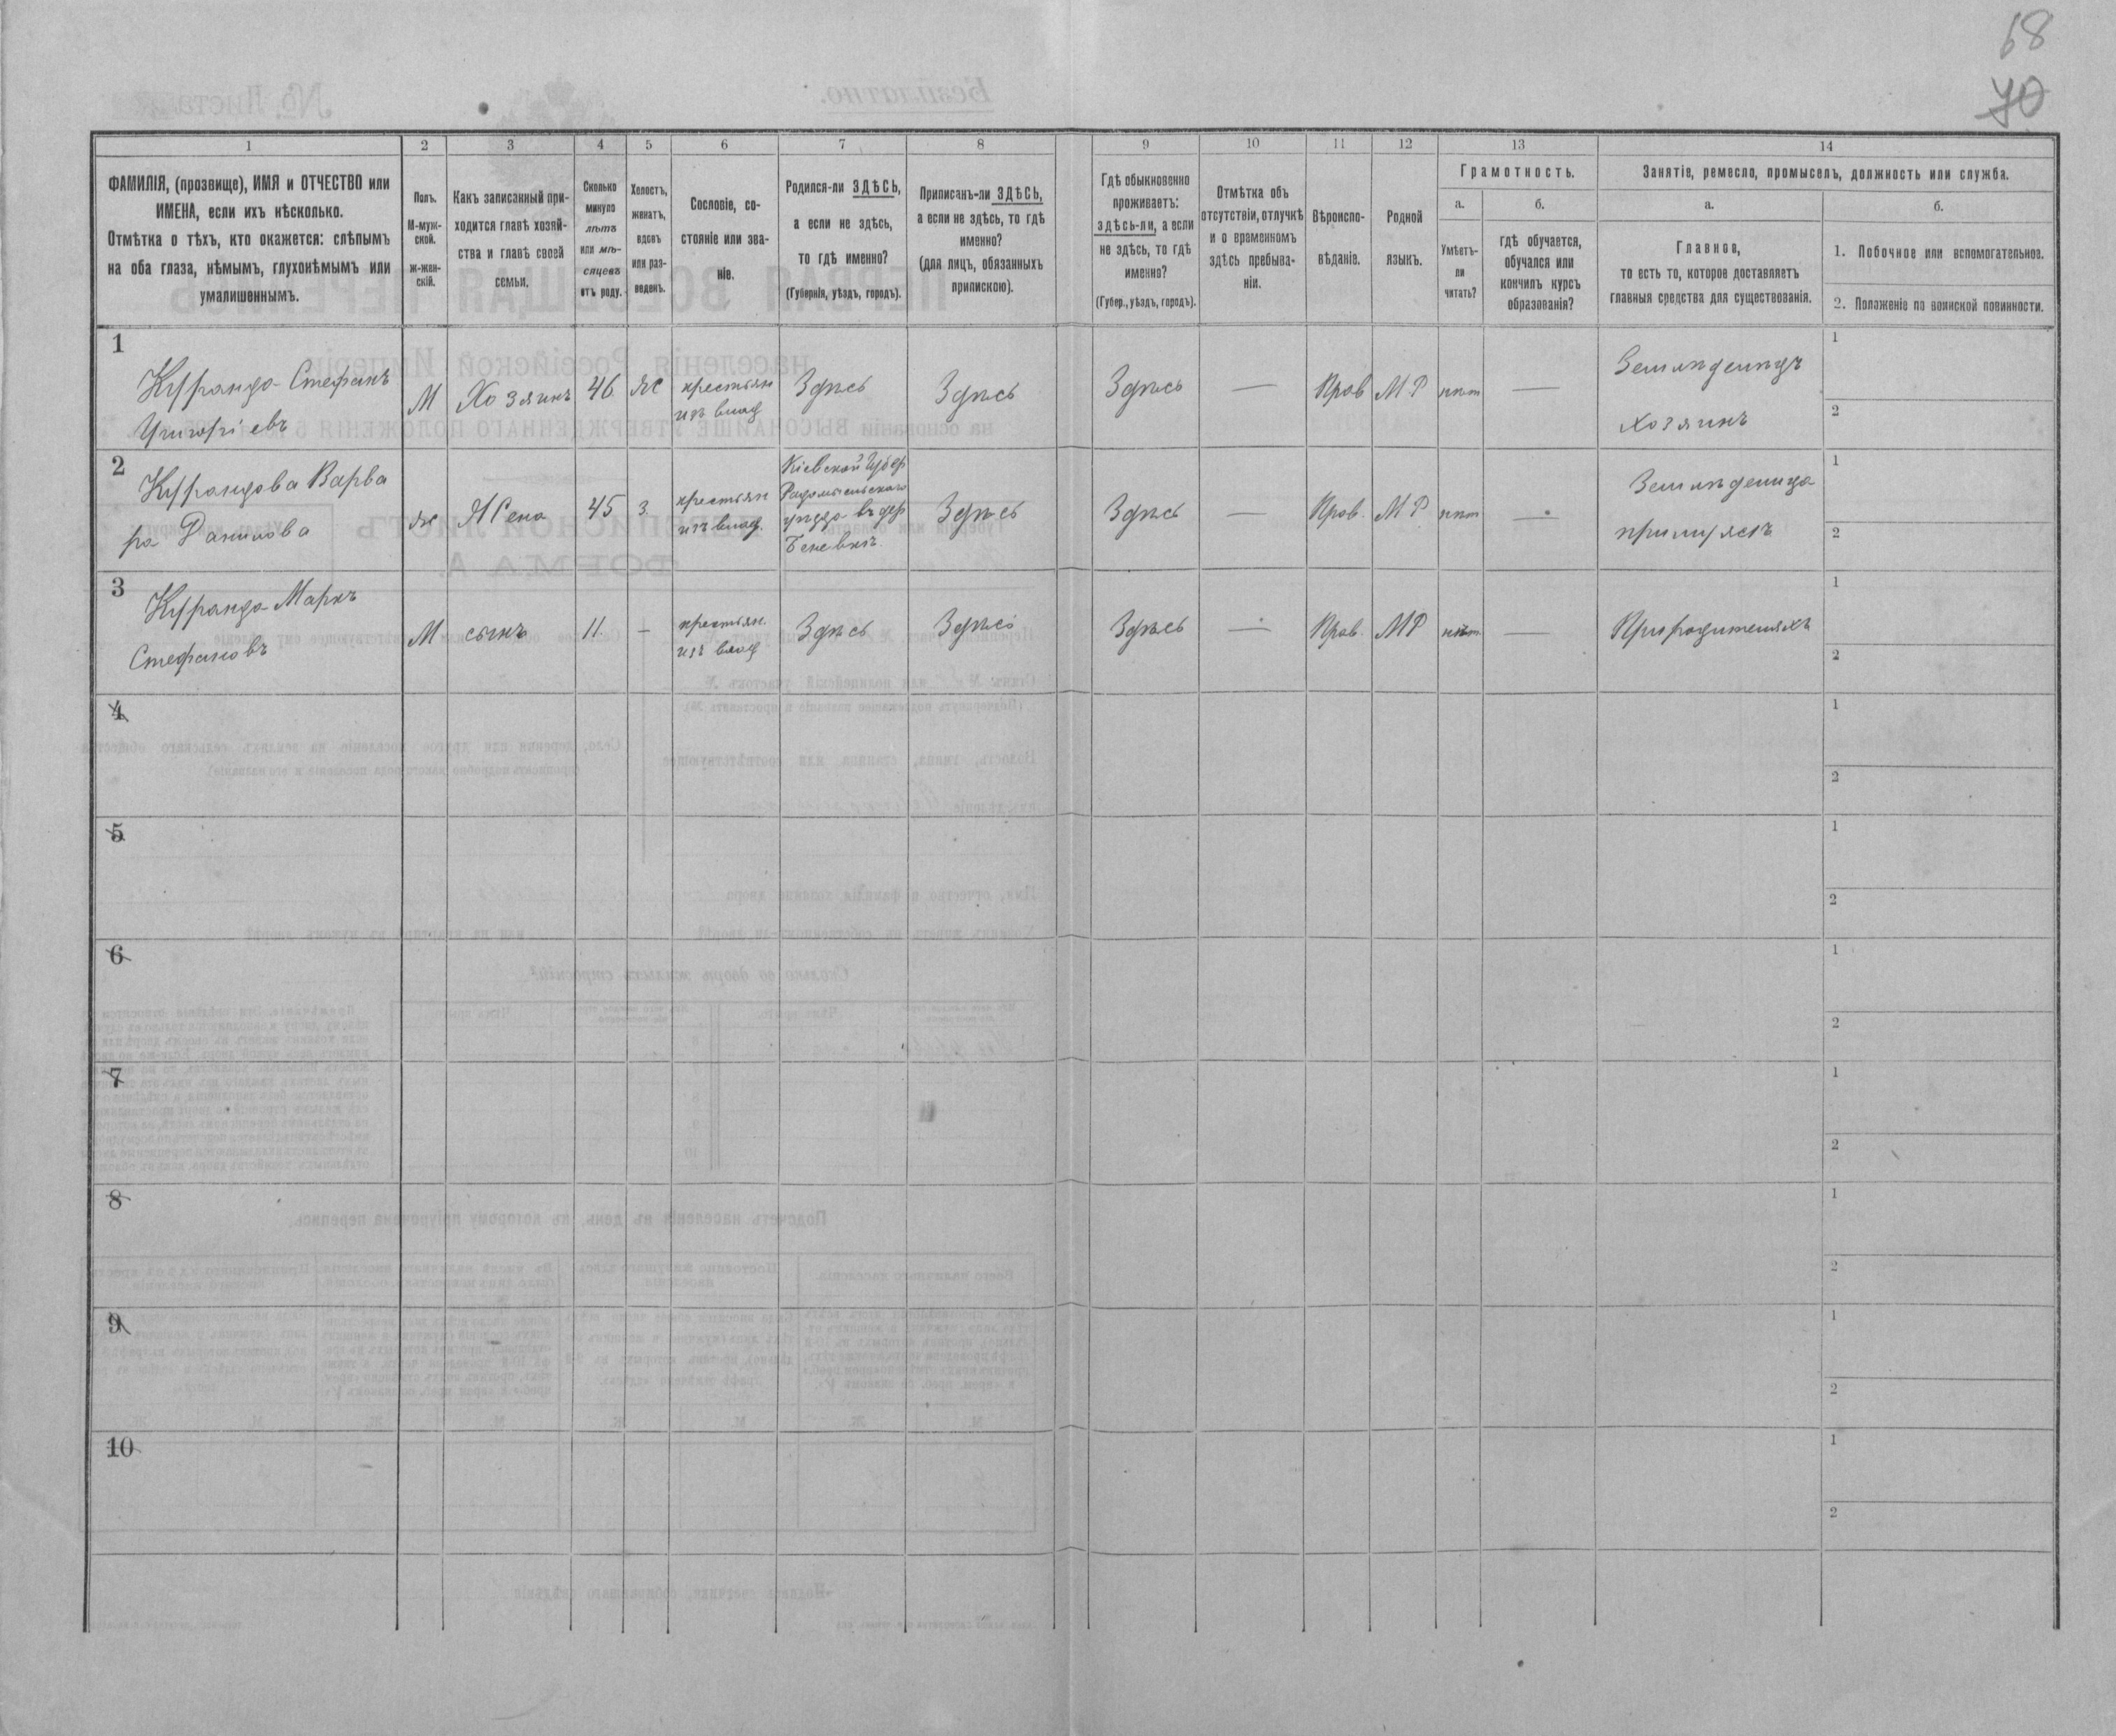 68
70
1 2 3 4 5 6 7 8 9 10 11 12 13 14
ФАМИЛІЯ, (прозвище), ИМЯ и ОТЧЕСТВО или
ИМЕНА, если ихъ нѣсколько.
Отмѣтка о тѣхъ, кто окажется: слѣпымъ
на оба глаза, нѣмымъ, глухонѣмымъ или
умалишеннымъ.
Полъ.
М-муж-
ской.
Ж-жен-
скій.
Какъ записанный при-
ходится главѣ хозяй-
ства и главѣ своей
семьи.
Сколько
минуло
лѣтъ
или мѣ-
сяцевъ
отъ роду.
Холостъ,
женатъ,
вдовъ
или раз-
веденъ.
Сословіе, со-
стояніе или зва-
ніе.
Родился-ли ЗДѢСЬ,
а если не здѣсь,
то гдѣ именно?
(Губернія, уѣздъ, городъ).
Приписанъ-ли ЗДѢСЬ,
а если не здѣсь, то гдѣ
именно?
(для лицъ, обязанныхъ
припискою).
Гдѣ обыкновенно
проживаетъ:
здѣсь-ли, а если
не здѣсь, то гдѣ
именно?
(Губер., уѣздъ, городъ).
Отмѣтка объ
отсутствіи, отлучкѣ
и о временномъ
здѣсь пребыва-
ніи.
Вѣроиспо-
вѣданіе.
Родной
языкъ.
Грамотность.
а.
Умѣетъ-
ли
читать?
б.
гдѣ обучается,
обучался или
кончилъ курсъ
образованія?
Занятіе, ремесло, промыселъ, должность или служба.
а.
Главное,
то есть то, которое доставляетъ
главныя средства для существованія.
б.
1. Побочное или вспомогательное.
2. Положеніе по воинской повинности.
1
Стефанъ
Григоріевъ
М
Хозяинъ
46
Ж
крестьян
изъ влад
Здѣсь
Здѣсь
Здѣсь
—
Прав
М Р
нѣт
—
Земледѣлецъ
хозяинъ
1
2
2
Варва
ра Данилова
ж
Жена
45
З.
крестьян
изъ влад.
Кіевской Губер
Радомысльскаго
уѣзда въ дер
Здѣсь
Здѣсь
—
Прав.
М Р
нѣт
—
Земледѣлица
при мужѣ
1
2
3
Маркъ
Стефановъ
М
сынъ
11.
—
крестьян.
изъ влад
Здѣсь
Здѣсь
Здѣсь
—
Прав.
М Р
нѣт.
—
При родителяхъ
1
2
4
1
2
5
1
2
6
1
2
7
1
2
8
1
2
9
1
2
10
1
2